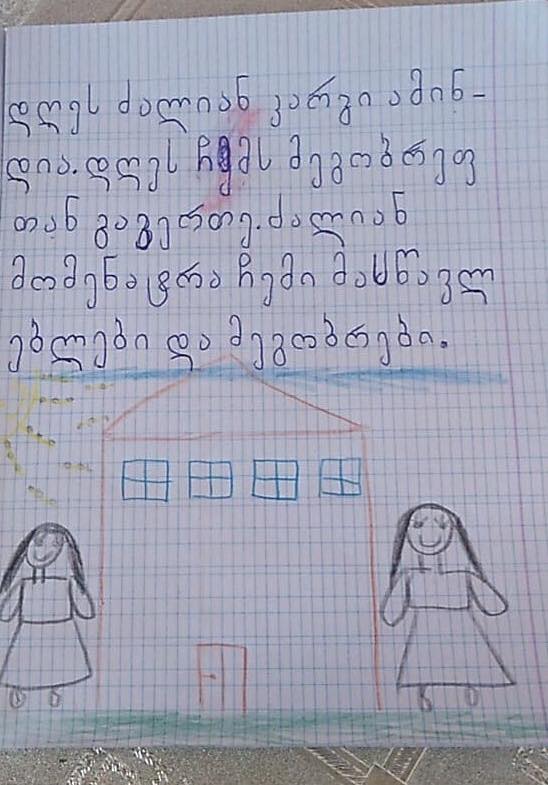 დღეს ძალიან კარგი ამინ-
დია. დღეს ჩემს მეგობრებ
თან გავერთე. ძალიან
მომენატრა ჩემი მასწავლ
ებლები და მეგობრები.